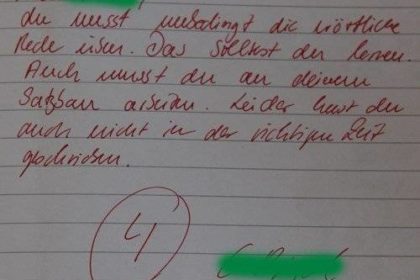 du musst unbedingt die wörtliche
Rede üben. Das solltest du lernen.
Auch musst du an deinem
Satzbau arbeiten. Leider hast du
auch nicht in der richtigen Zeit
geschrieben.
4